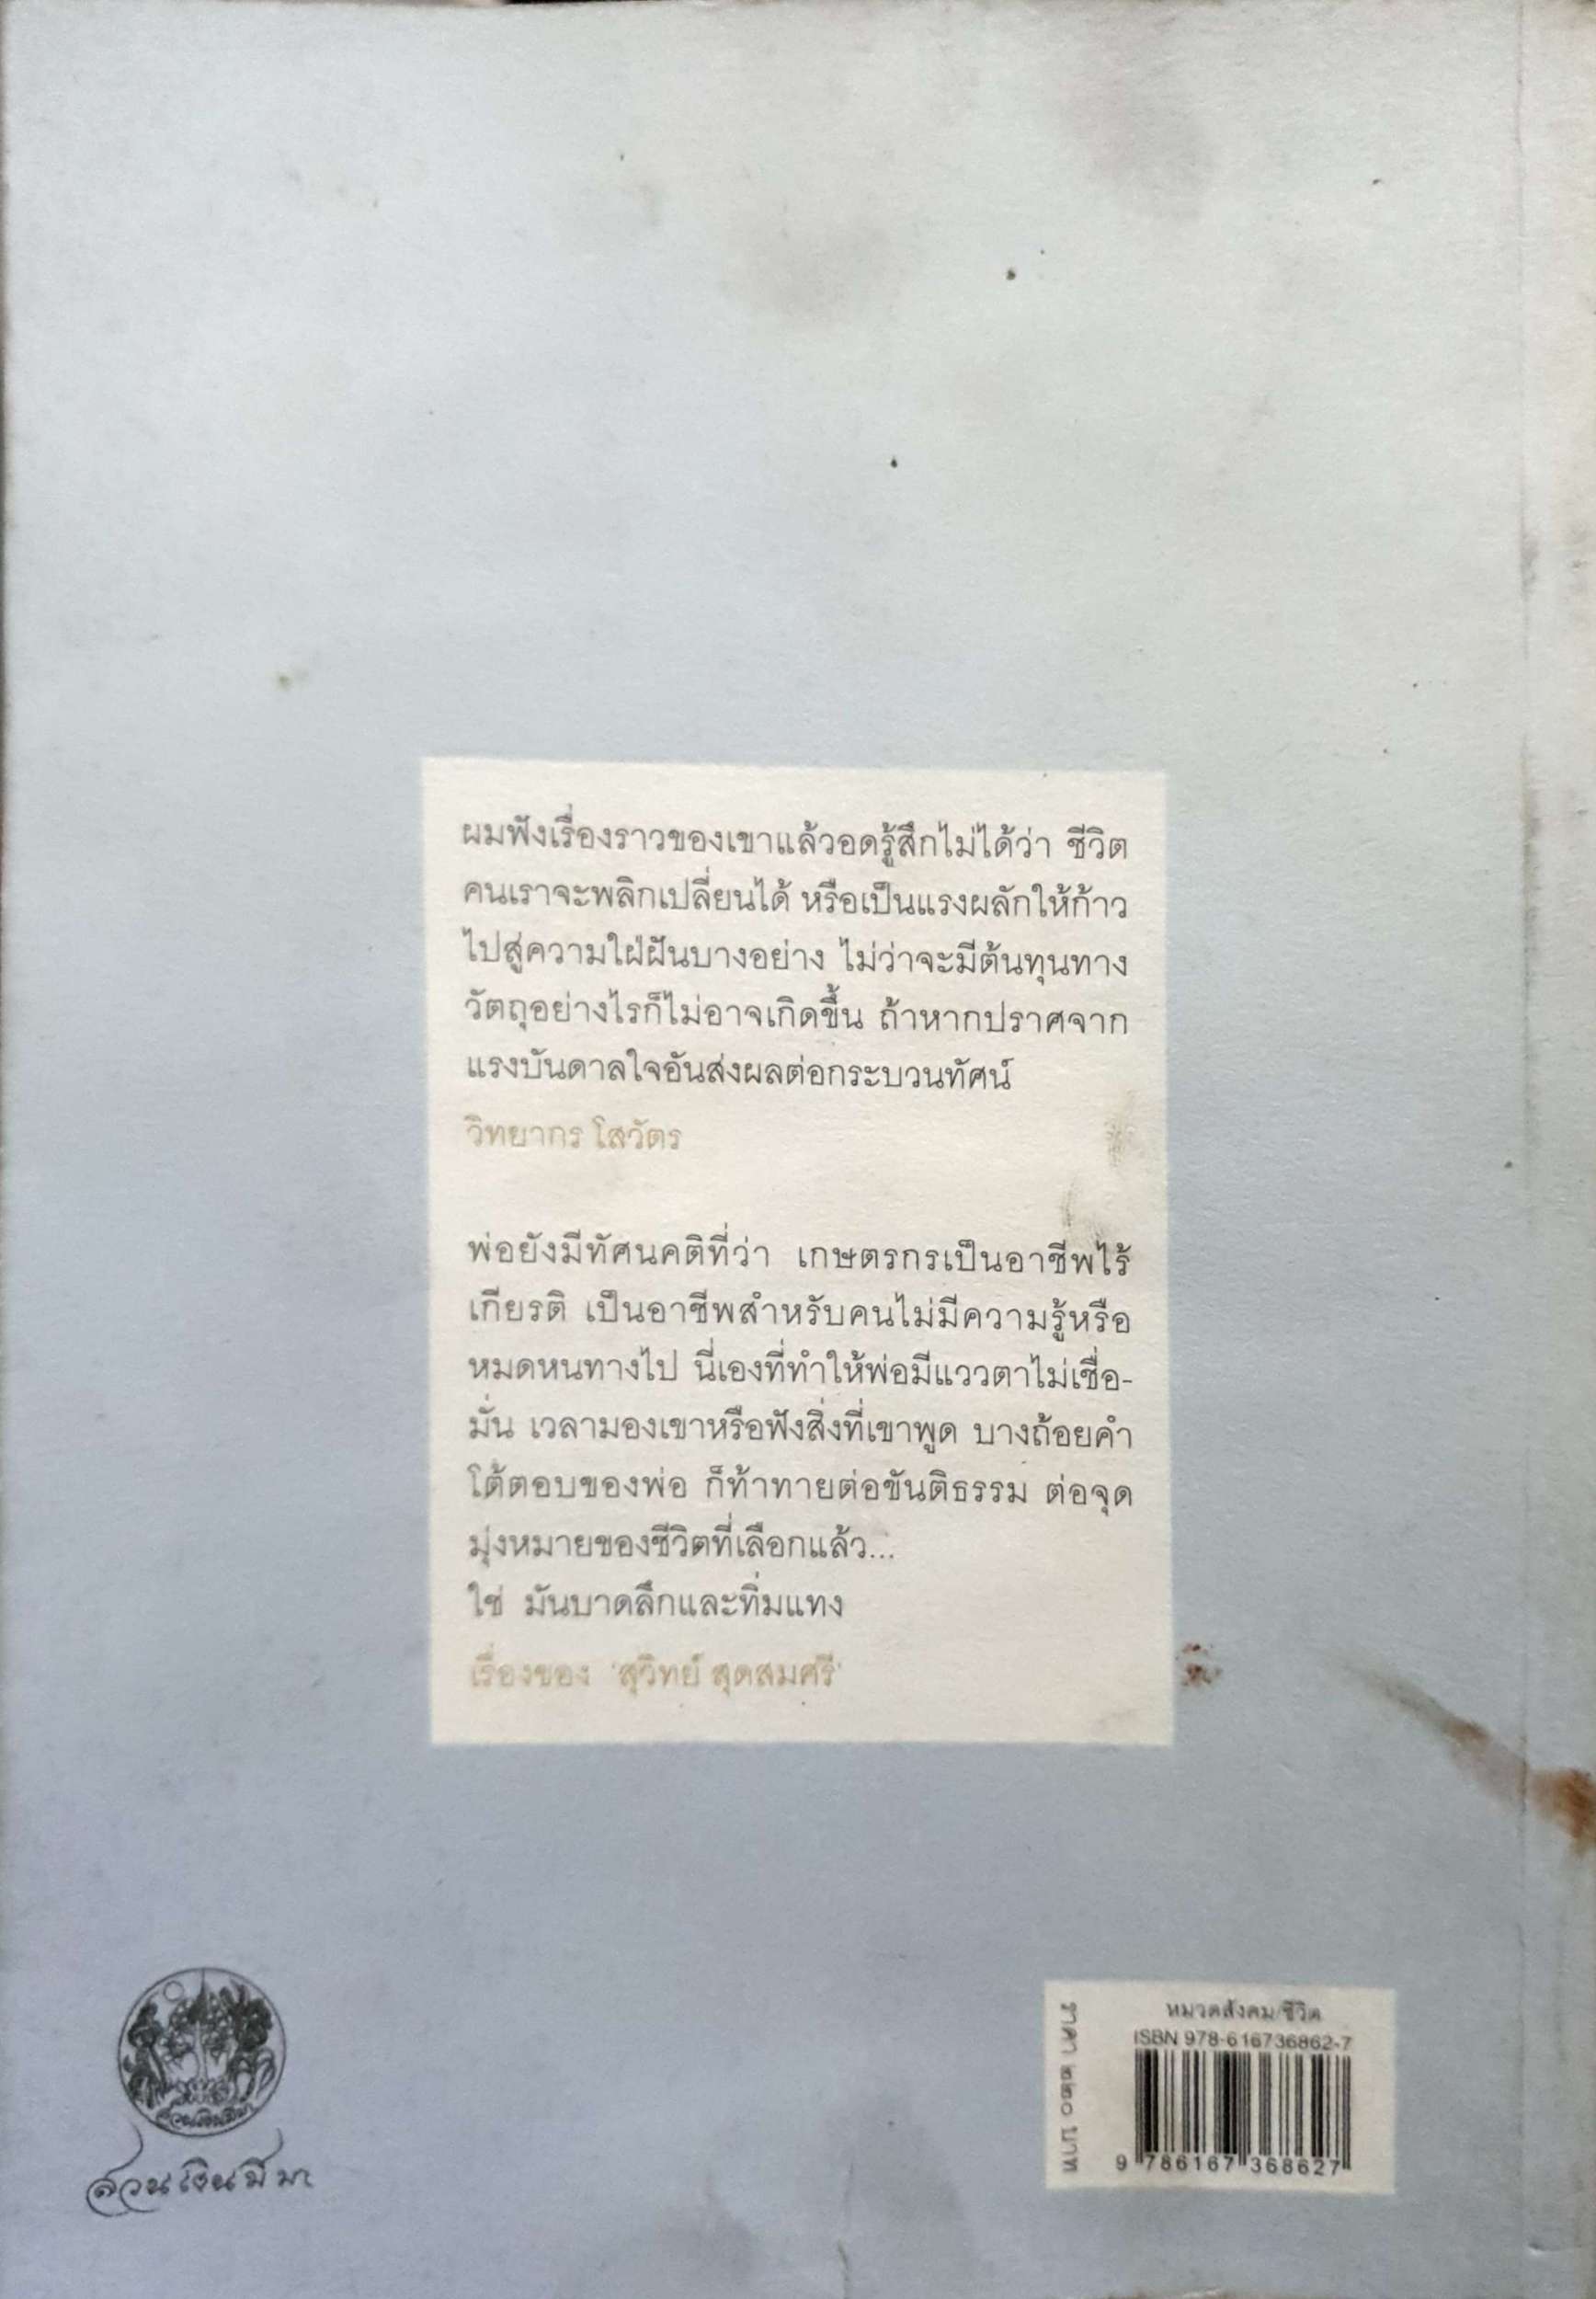 ผมฟังเรื่องราวของเขาแล้วอดรู้สึกไม่ได้ว่า ชีวิต
คนเราจะพลิกเปลี่ยนได้ หรือเป็นแรงผลักให้ก้าว
ไปสู่ความใฝ่ฝันบางอย่าง ไม่ว่าจะมีต้นทุนทาง
วัตถุอย่างไรก็ไม่อาจเกิดขึ้น ถ้าหากปราศจาก
แรงบันดาลใจอันส่งผลต่อกระบวนทัศน์
วิทยากร โสวัตร
พ่อยังมีทัศนคติที่ว่า เกษตรกรเป็นอาชีพไร้
เกียรติ เป็นอาชีพสำหรับคนไม่มีความรู้หรือ
หมดหนทางไป นี่เองที่ทำให้พ่อมีแววตาไม่เชื่อ-
มั่น เวลามองเขาหรือฟังสิ่งที่เขาพูด บางถ้อยคำ
โต้ตอบของพ่อ ก็ท้าทายต่อขันติธรรม ต่อจุด
มุ่งหมายของชีวิตที่เลือกแล้ว...
ใช่ มันบาดลึกและทิ่มแทง
เรื่องของ 'สุวิทย์ สุดสมศรี'
สวนเงินมีมา
สวนเงินมีมา
หมวดสังคม/ชีวิต
ISBN 978-616736862-7
9 786167 368627
ราคา ๒๒๐ บาท